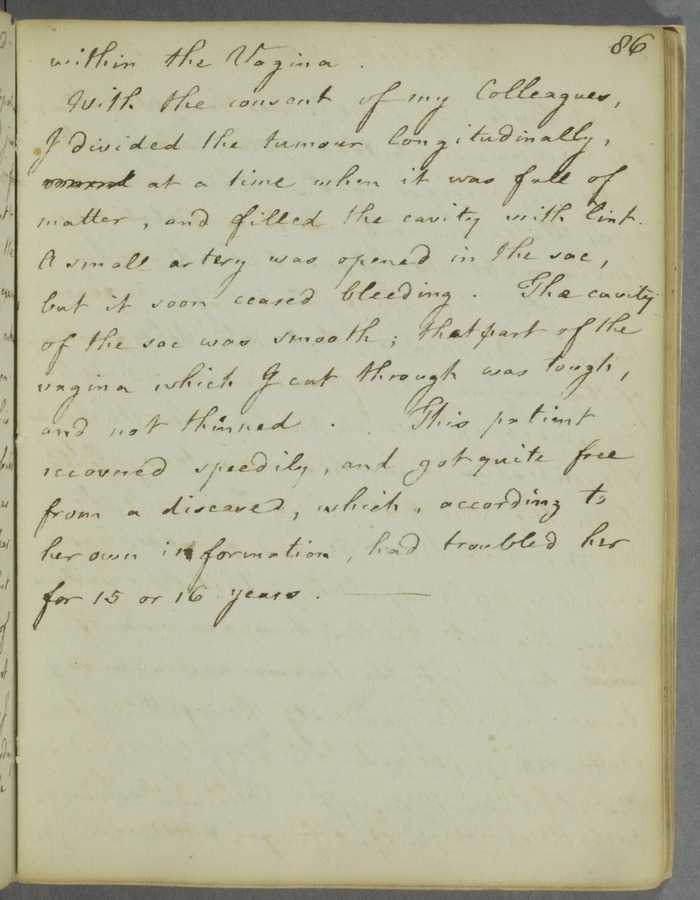 86
within the Vagina .
With the consent of my Colleagues,
I divided the tumour longitudinally,
at a time when it was full of
matter, and filled the cavity with lint.
A small artery was opened in the sac,
but it soon ceased bleeding . The cavity
of the sac was smooth ; that part of the
vagina which I cut through was tough,
and not thinned . This patient
recovered speedily, and got quite free
from a diseased, which, according to
her own information, had troubled her
for 15 or 16 years . —